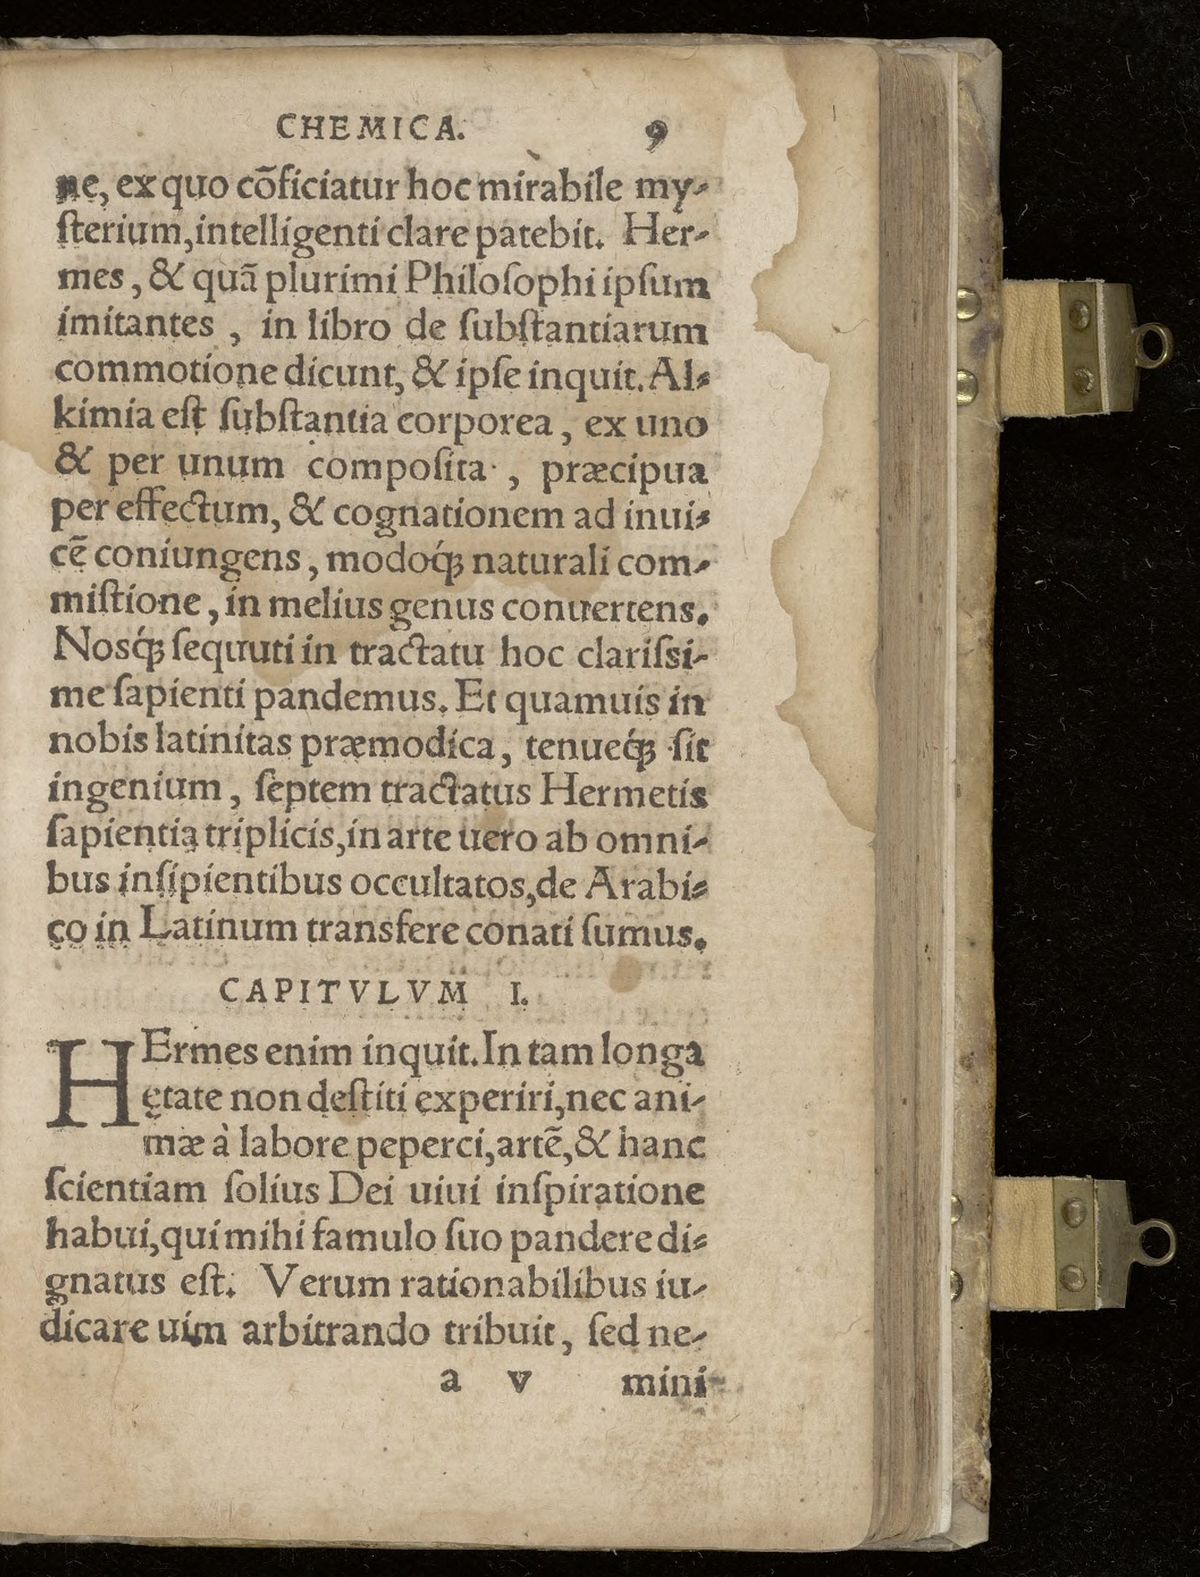 CHEMICA. 9
ne, ex quo cõficiatur hoc mirabile my-
ſterium, intelligenti clare patebit. Her-
mes, & quã plurimi Philoſophi ipſum
imitantes, in libro de ſubſtantiarum
commotione dicunt, & ipſe inquit. Al-
kimia eſt ſubſtantia corporea, ex uno
& per unum compoſita, præcipua
per effectum, & cognationem ad inui-
cẽ coniungens, modoq́ꝫ naturali com-
miſtione, in melius genus conuertens.
Nosq́ꝫ ſequuti in tractatu hoc clariſsi-
me ſapienti pandemus. Et quamuis in
nobis latinitas præmodica, tenueq́ꝫ ſit
ingenium, ſeptem tractatus Hermetis
ſapientia triplicis, in arte uero ab omni-
bus inſipientibus occultatos, de Arabi-
co in Latinum transfere conati ſumus.
CAPITVLVM I.
HErmes enim inquit. In tam longa
ętate non deſtiti experiri, nec ani-
mæ à labore peperci, artẽ, & hanc
ſcientiam ſolius Dei uiui inſpiratione
habui, qui mihi famulo ſuo pandere di-
gnatus eſt. Verum rationabilibus iu-
dicare uim arbitrando tribuit, ſed ne-
a v mini-